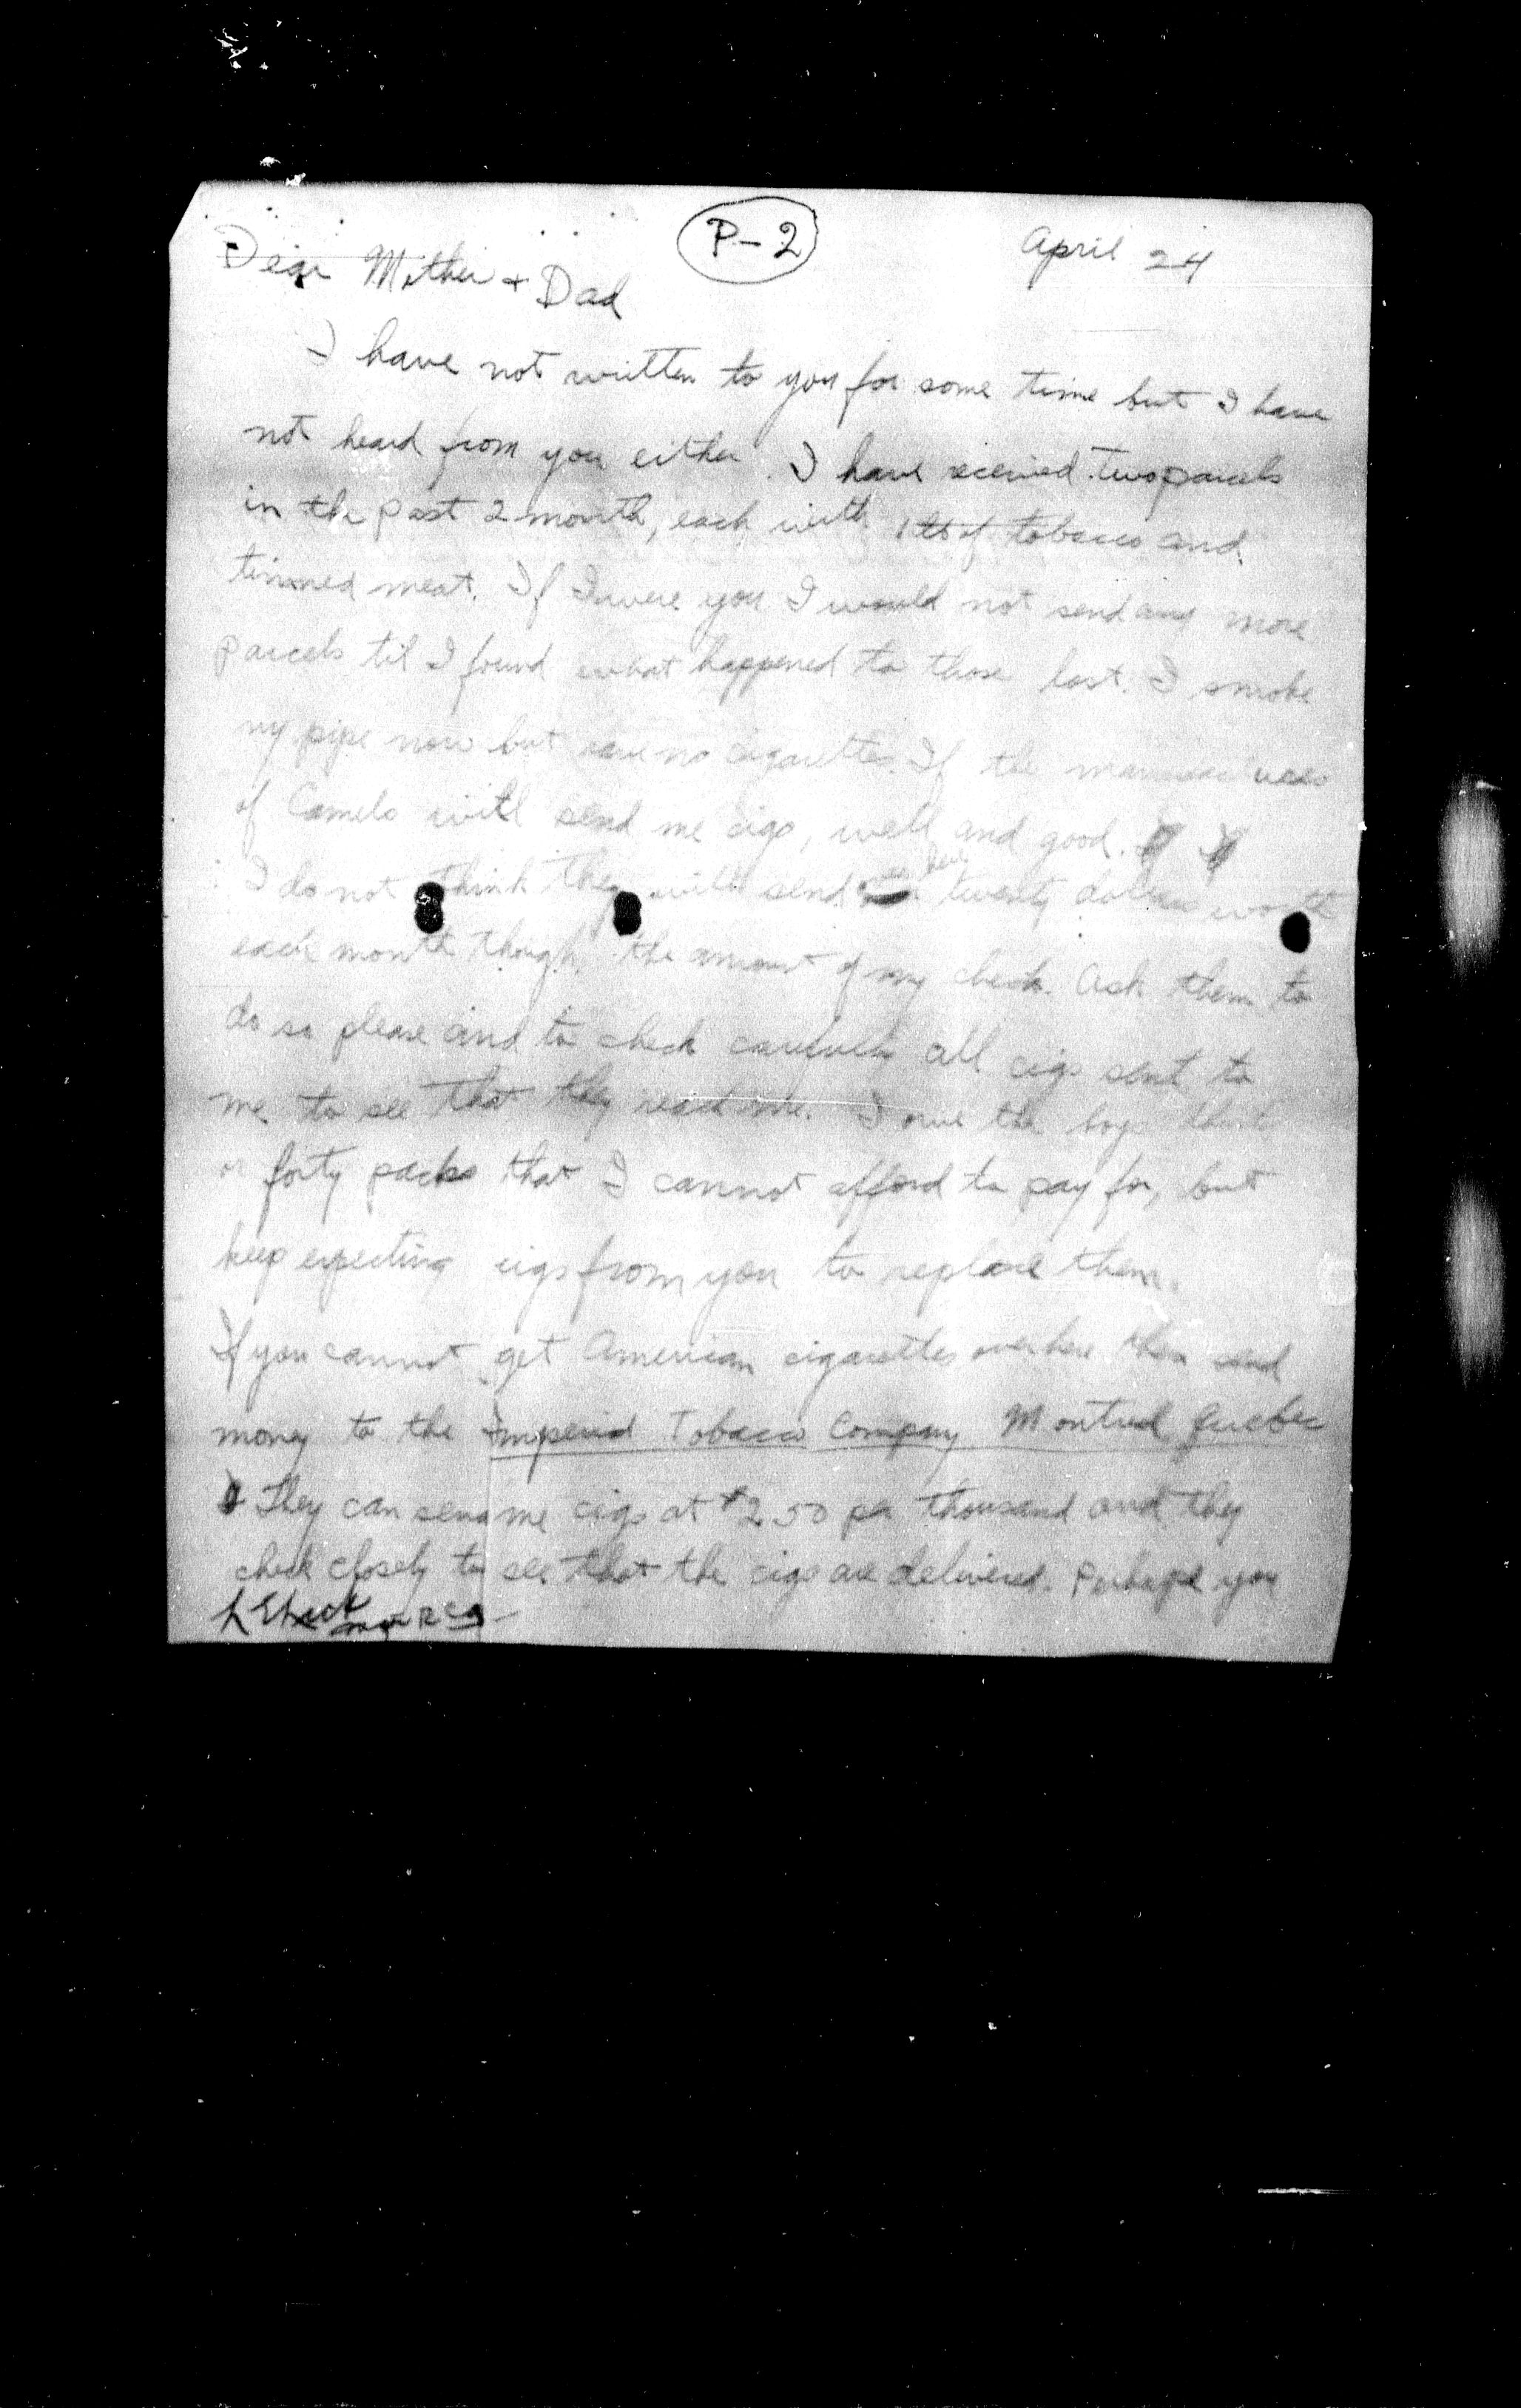 P-2
April 24
Dear Mother + Dad
I have not written to you for some time but I have
not heard from you either. I have received two parcels
in the past 2 month, each with 1 lb of tobacco and
tinned meat. If I were you I would not send any more
parcels til I found what happened to those last. I smoke
my pipe now but have no cigarettes. If the
of Camels will send me cigs, well and good.
I do not think they will send twenty dollars worth
each month though, the amount of my check. Ask them to
do so please and to check carefully all cigs sent to
me to see that they reach me. I owe the boys
or forty packs that I cannot afford to pay for, but
keep expecting cigs from you to replace them.
If you cannot get American cigarettes over here then send
money to the Imperial Tobacco Company Montreal Quebec
They can send me cigs at $2.50 per thousand and they
check closely to see that the cigs are delivered. Perhaps you